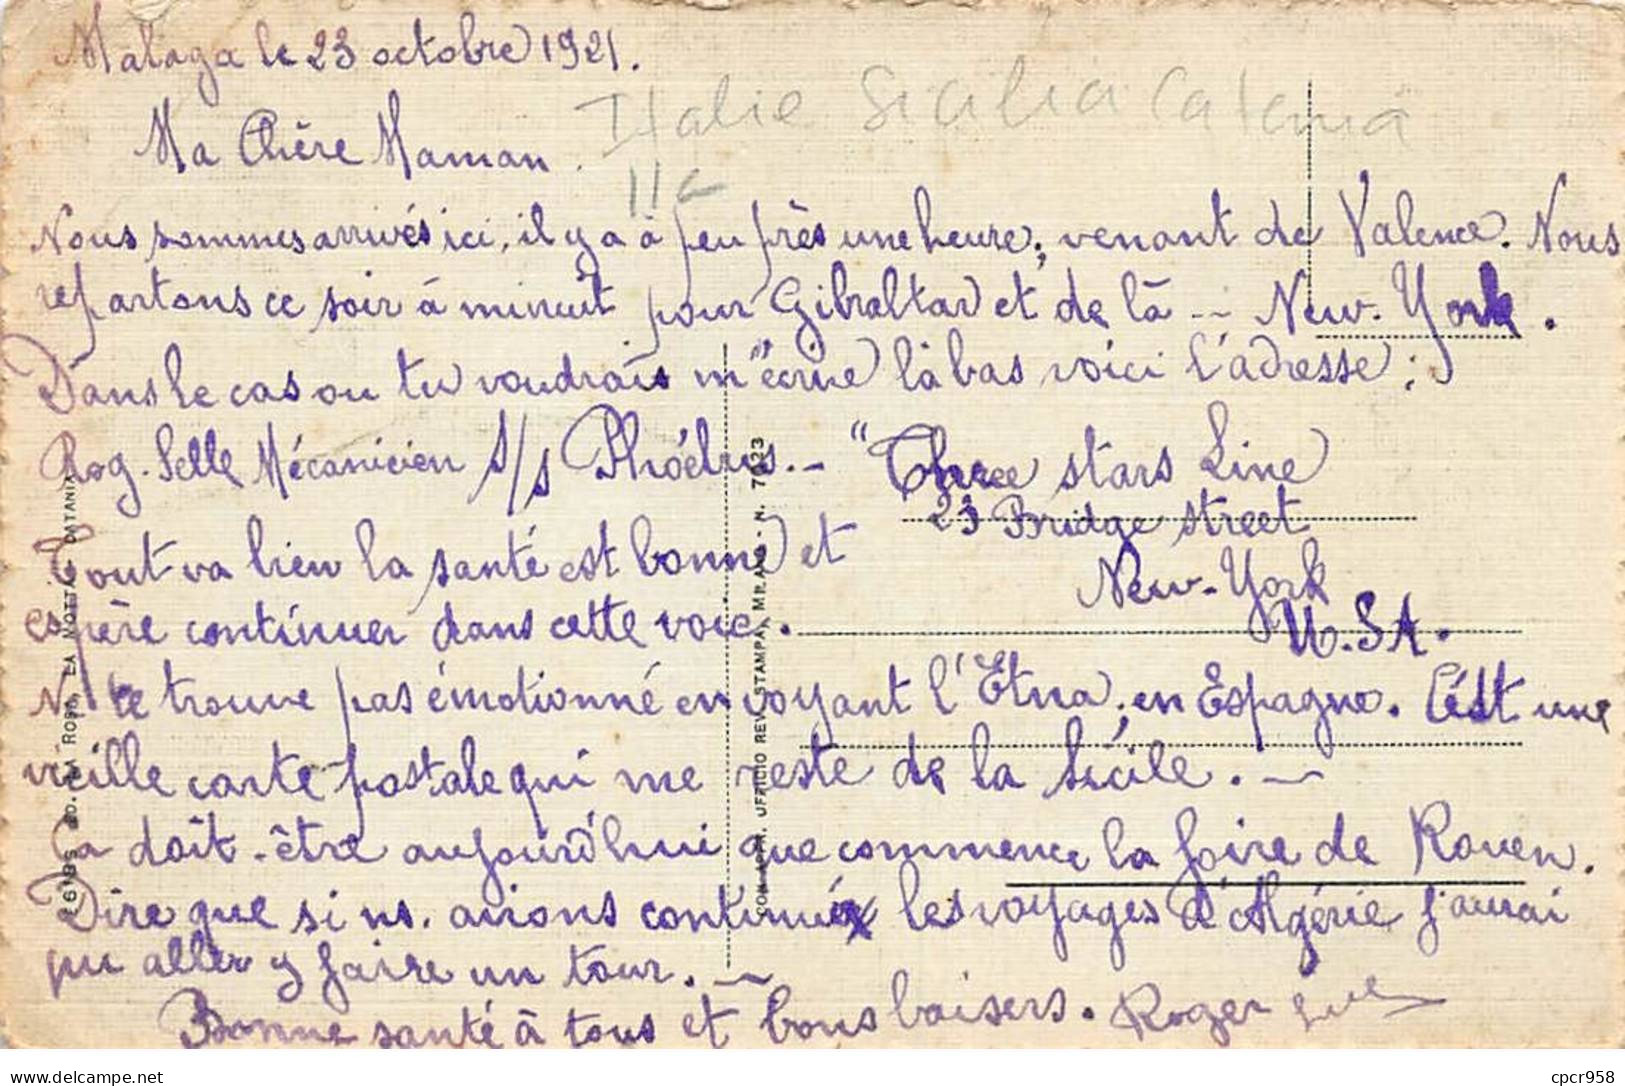 Malaga le 23 octobre 1921.
Italie Sicilia Catania
Ma Chère Maman.
11c
Nous sommes arrivés ici, il y a à peu près une heure, venant de Valence. Nous
repartons ce soir à minuit pour Gibraltar et de là -- New-York.
Dans le cas ou tu voudrais m'écrire là bas voici l'adresse :
Rog. Selle Mécanicien S/s Phóebus. - "Three stars Line
23 Bridge street
New-York
U.S.A.
Tout va bien la santé est bonne et
espère continuer dans cette voie.
Ne te trouve pas émotionné en voyant l'Etna, en Espagne. C'est une
vieille carte postale qui me reste de la Sicile. -
Ca doit-être aujourd'hui que commence la foire de Rouen.
Dire que si ns. avions continué les voyages d'Algérie j'aurai
pu aller y faire un tour. -
Bonne santé à tous et bons baisers. Roger
ROSA, LA MOTTA CATANIA
UFFICIO REV. STAMPA, MILANO - N. 7023
delcampe.net
cpcr958